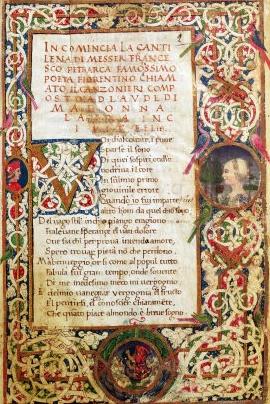 IN COMINCIA LA CANTI
LENA DI MESSER FRANCE
SCO PITRARCA FAMOSSIMO
POETA FIORENTINO CHIAM
ATO, IL CANZONIERI COMP
OSTO AD LAVDE DI
MADONNA
LA INC
V
Oi
sparse il sono
Di quei sospiri,
nodriva il core
In sulmio primo
giovinile errore
Quando io fui
altro hom da quel chi sono
Del vario stile inchio piango
Fra le vane speranze el van dolore
Ove sia chi per prova intenda amore,
Spero trovar pietà no che perdono.
Ma ben veggio or si come al popul tutto
Fabula fui gran tempo, onde sovente
Di me medesimo meco mi vergogno
vergogna el frutto
El pentirsi, el conoscer chiaramente,
Che quato piace almondo è breve sogno.